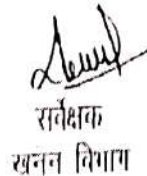 सर्वेक्षक
खनन विभाग